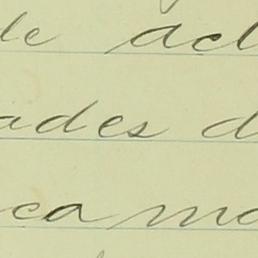 de act
ades d
ca ma